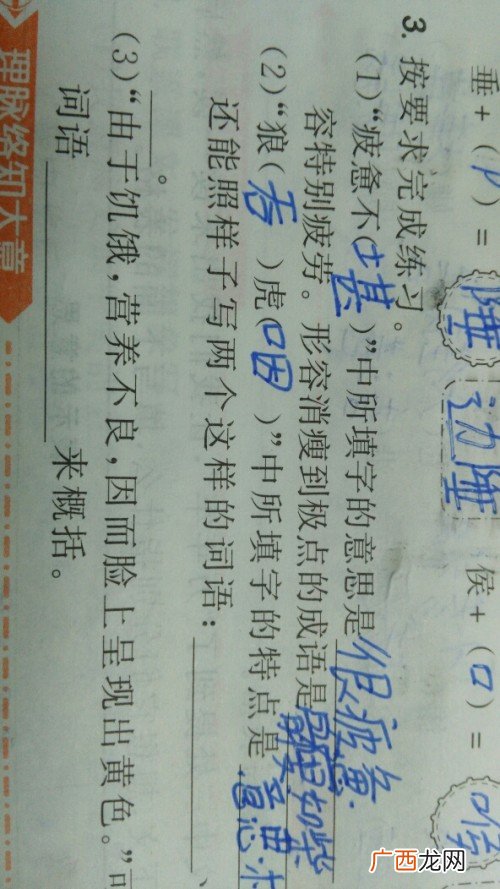 垂+(阝)=陲 边陲 侯+(口)=
3. 按要求完成练习。
(1)“疲惫不(堪)”中所填字的意思是很疲惫.
容特别疲劳。形容消瘦到极点的成语是骨瘦如柴
(2)“狼(吞)虎(咽)”中所填字的特点是
还能照样子写两个这样的词语：、
。
(3)“由于饥饿，营养不良，因而脸上呈现出黄色。”可
词语 来概括。
理脉络知大意
广西龙网